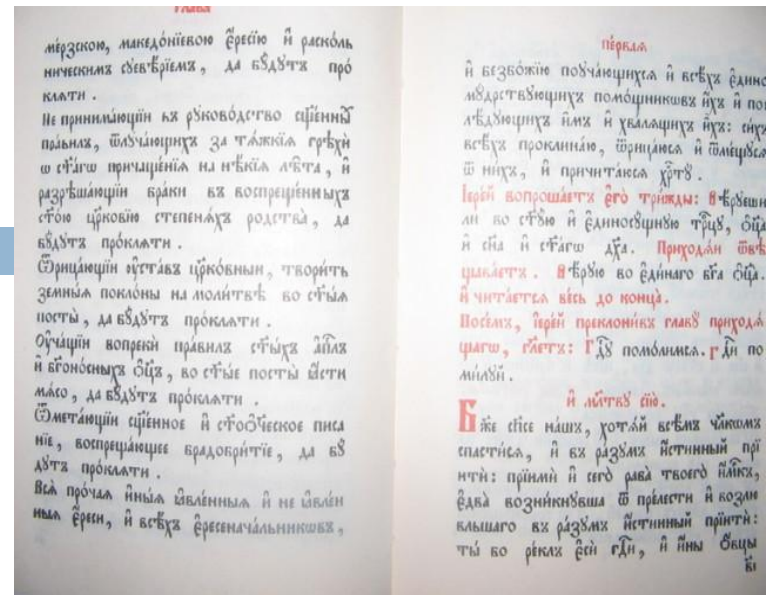 глава
ме́рзскою, македо́нїевою є҆́ресїю и҆ расколь
ническимъ суевѣ́рїемъ, да бꙋ́дꙋтъ про́
клѧти.
Не принима́ющїи въ рꙋково́дство сщ҃е́нныѧ
пра́вилъ, ѿлꙋча́ющихъ за тѧ́жкїѧ грѣхѝ
ѡ ст҃а́гѡ причаще́нїѧ на нѣ́кїѧ лѣ́та, и҆
разрѣша́ющїи браки въ воспреще́нныхъ
ст҃о́ю цр҃ко́вїю степенѧ́хъ родства̀, да
бꙋ́дꙋтъ про́клѧти.
Ѿрица́ющїи ᲂу҆ста́въ цр҃ко́вныи, твори́ть
земны́ѧ покло́ны на моли́твѣ во ст҃ы́ѧ
посты̀, да бꙋ́дꙋтъ про́клѧти.
Оу҆ча́щїи вопрекѝ пра́вилъ ст҃ы́хъ а҆пл҃ъ
и҆ бг҃оно́сныхъ ѻ҆ц҃ъ, во ст҃ы́е посты̀ ꙗ҆́сти
мѧ́со, да бꙋ́дꙋтъ про́клѧти.
Ѿмета́ющїи сщ҃е́нное и҆ ст҃оѻ҆́ч҃еское писа
нїе, воспреща́ющее брадобри́тїе, да бꙋ́
дꙋтъ про́клѧти.
Всѧ̑ про́чаѧ и҆ны́ѧ ꙗ҆вле́нныѧ и҆ не ꙗ҆вле́н
ныѧ є҆́реси, и҆ всѣ́хъ є҆ресенача́льникѡвъ,
пе́рваѧ
и҆ безбо́жїю поꙋча́ющихсѧ и҆ всѣ́хъ є҆дино
мꙋ́дрствꙋющихъ помо́щникѡвъ и҆́хъ и҆ по
лѣ́дꙋющихъ и҆̀мъ и҆ хвалѧ́щихъ и҆́хъ: си́хъ
всѣ́хъ проклина́ю, ѿрица́юсѧ и҆ ѿмещꙋ́сѧ
ѿ ни́хъ, и҆ причита́юсѧ хр҃тꙋ̀.
І҆ере́й вопроша́етъ є҆го̀ три́жды: Вѣ́рꙋеши
ли во ст҃ꙋ́ю и҆ є҆диносꙋ́щнꙋю тр҃цꙋ, ѻ҆ц҃а̀
и҆ сн҃а и҆ ст҃а́гѡ дх҃а. Приходѧ́и ѿвѣ
щава́етъ. Вѣ́рꙋю во є҆ди́наго бг҃а ѻ҆ц҃а̀.
И҆ чита́етсѧ ве́сь до конца̀.
Посе́мъ, і҆ере́й преклони́въ главꙋ̀ приходѧ́
щагѡ, гл҃етъ: Гдⷭ҇ꙋ помо́лимсѧ. гдⷭ҇и по
ми́лꙋй.
И҆ мл҃твꙋ сїю̀.
Бж҃е сп҃се на́шъ, хотѧ́й всѣ́мъ чл҃кѡмъ
спасти́сѧ, и҆ въ ра́зꙋмъ и҆́стинный прї
итѝ: прїимѝ и҆ сего̀ раба̀ твоего̀ и҆мⷬ҇къ,
є҆два̀ возни́кнꙋвша ѿ пре́лести и҆ возлю
влшаго въ ра́зꙋмъ и҆́стинный прїитѝ:
ты́ бо ре́клъ є҆сѝ гдⷭ҇и, и҆ и҆́ны ѻ҆́вцы
в҃і